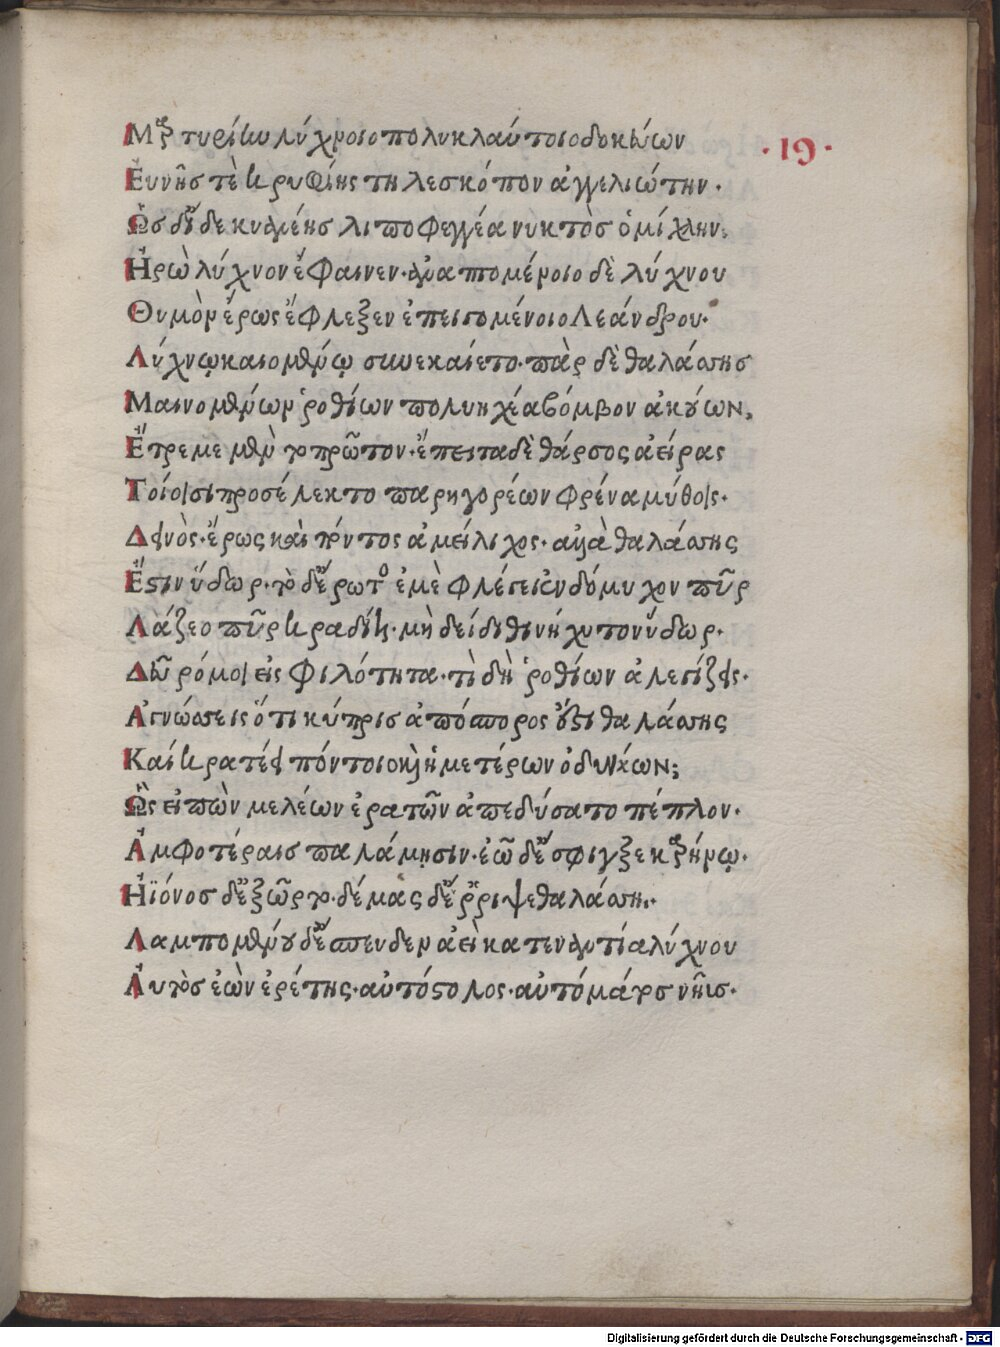 Μαρτυρίην λύχνοιο πολυκλαύτοιο δοκεύων
·19·
Εὐνῆς τὲ κρυφίης τηλεσκόπον ἀγγελιώτην·
Ὡς δ' ἴδε κυανέης λιποφεγγέα νυκτὸς ὁμίχλην,
Ἡρὼ λύχνον ἔφαινεν· ἀναπτομένοιο δὲ λύχνου
Θυμὸν ἔρως ἔφλεξεν ἐπειγομένοιο Λεάνδρου·
Λύχνῳ καιομένῳ συνεκαίετο· πὰρ δὲ θαλάσσης
Μαινομένων ῥοθίων πολυηχέα βόμβον ἀκούων,
Ἔτρεμε μὲν τοπρῶτον· ἔπειτα δὲ θάρσος ἀείρας
Τοίοισι προσέλεκτο παρηγορέων φρένα μύθοις·
Δεινὸς· ἔρως καὶ πόντος ἀμείλιχος· ἀλλὰ θαλάσσης
Ἔστιν ὕδωρ· τὸ δ' ἔρωτος ἐμὲ φλέγει ἐνδόμυχον πῦρ
Λάζεο πῦρ κραδίη· μὴ δείδιθι νήχυτον ὕδωρ·
Δεῦρό μοι εἰς φιλότητα· τὶ δὴ ῥοθίων ἀλεγίζεις·
Ἀγνώσσεις ὅτι κύπρις ἀπόσπορος ἐστὶ θαλάσσης
Καὶ κρατέει πόντοιο καὶ ἡμετέρων ὀδυνάων;
Ὣς εἰπὼν μελέων ἐρατῶν ἀπεδύσατο πέπλον·
Ἀμφοτέραις παλάμῃσιν· ἑῶ δ' ἔσφιγξε καρήνῳ·
Ἠϊόνος δ' ἐξῶρτο· δέμας δ' ἔῤῥιψε θαλάσσῃ·
Λαμπομένου δ' ἔσπευδεν ἀεὶ κατεναντία λύχνου
Αὐτὸς ἐὼν ἐρέτης· αὐτόστολος· αὐτόματος νῆις·
Digitalisierung gefördert durch die Deutsche Forschungsgemeinschaft · DFG